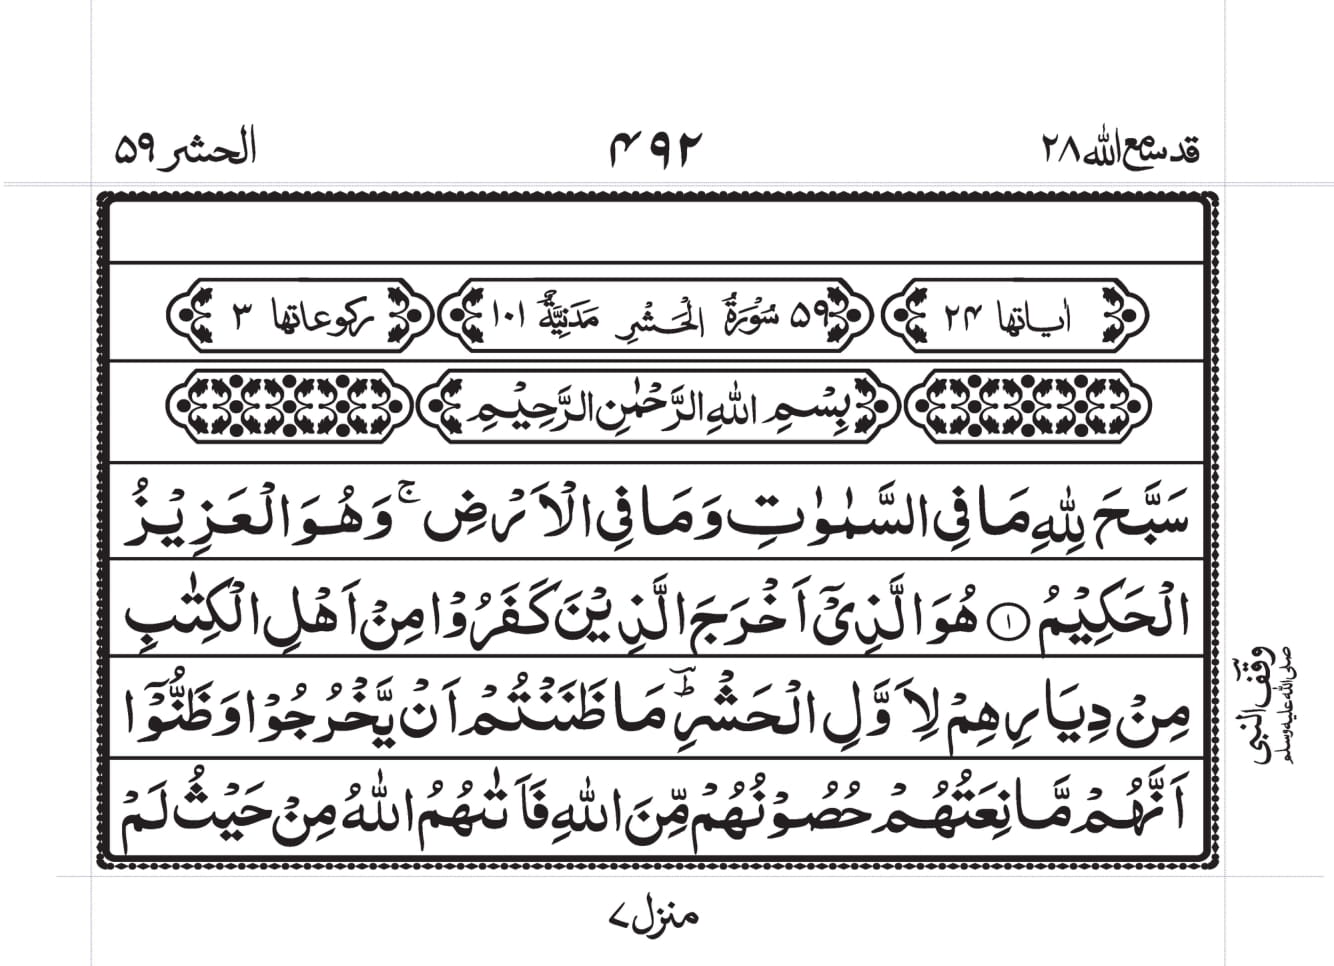 قد سمع الله ٢٨ ۴۹۲ الحشر ۵۹
اٰیاتها ۲۴ ۵۹ سُوْرَةُ الْحَشْرِ مَدَنِیَّةٌ ۱۰۱ رکوعاتها ۳
بِسْمِ اللهِ الرَّحْمٰنِ الرَّحِیْمِ
سَبَّحَ لِلّٰهِ مَا فِی السَّمٰوٰتِ وَمَا فِی الْاَرْضِ ۚ وَهُوَ الْعَزِیْزُ
الْحَكِیْمُ ۱ هُوَ الَّذِیْۤ اَخْرَجَ الَّذِیْنَ كَفَرُوْا مِنْ اَهْلِ الْكِتٰبِ
مِنْ دِیَارِهِمْ لِاَوَّلِ الْحَشْرِ ؕ مَا ظَنَنْتُمْ اَنْ یَّخْرُجُوْا وَظَنُّوْۤا
اَنَّهُمْ مَّانِعَتُهُمْ حُصُوْنُهُمْ مِّنَ اللهِ فَاَتٰىهُمُ اللهُ مِنْ حَیْثُ لَمْ
وقف النبی صلی الله علیه وسلم
منزل ۷